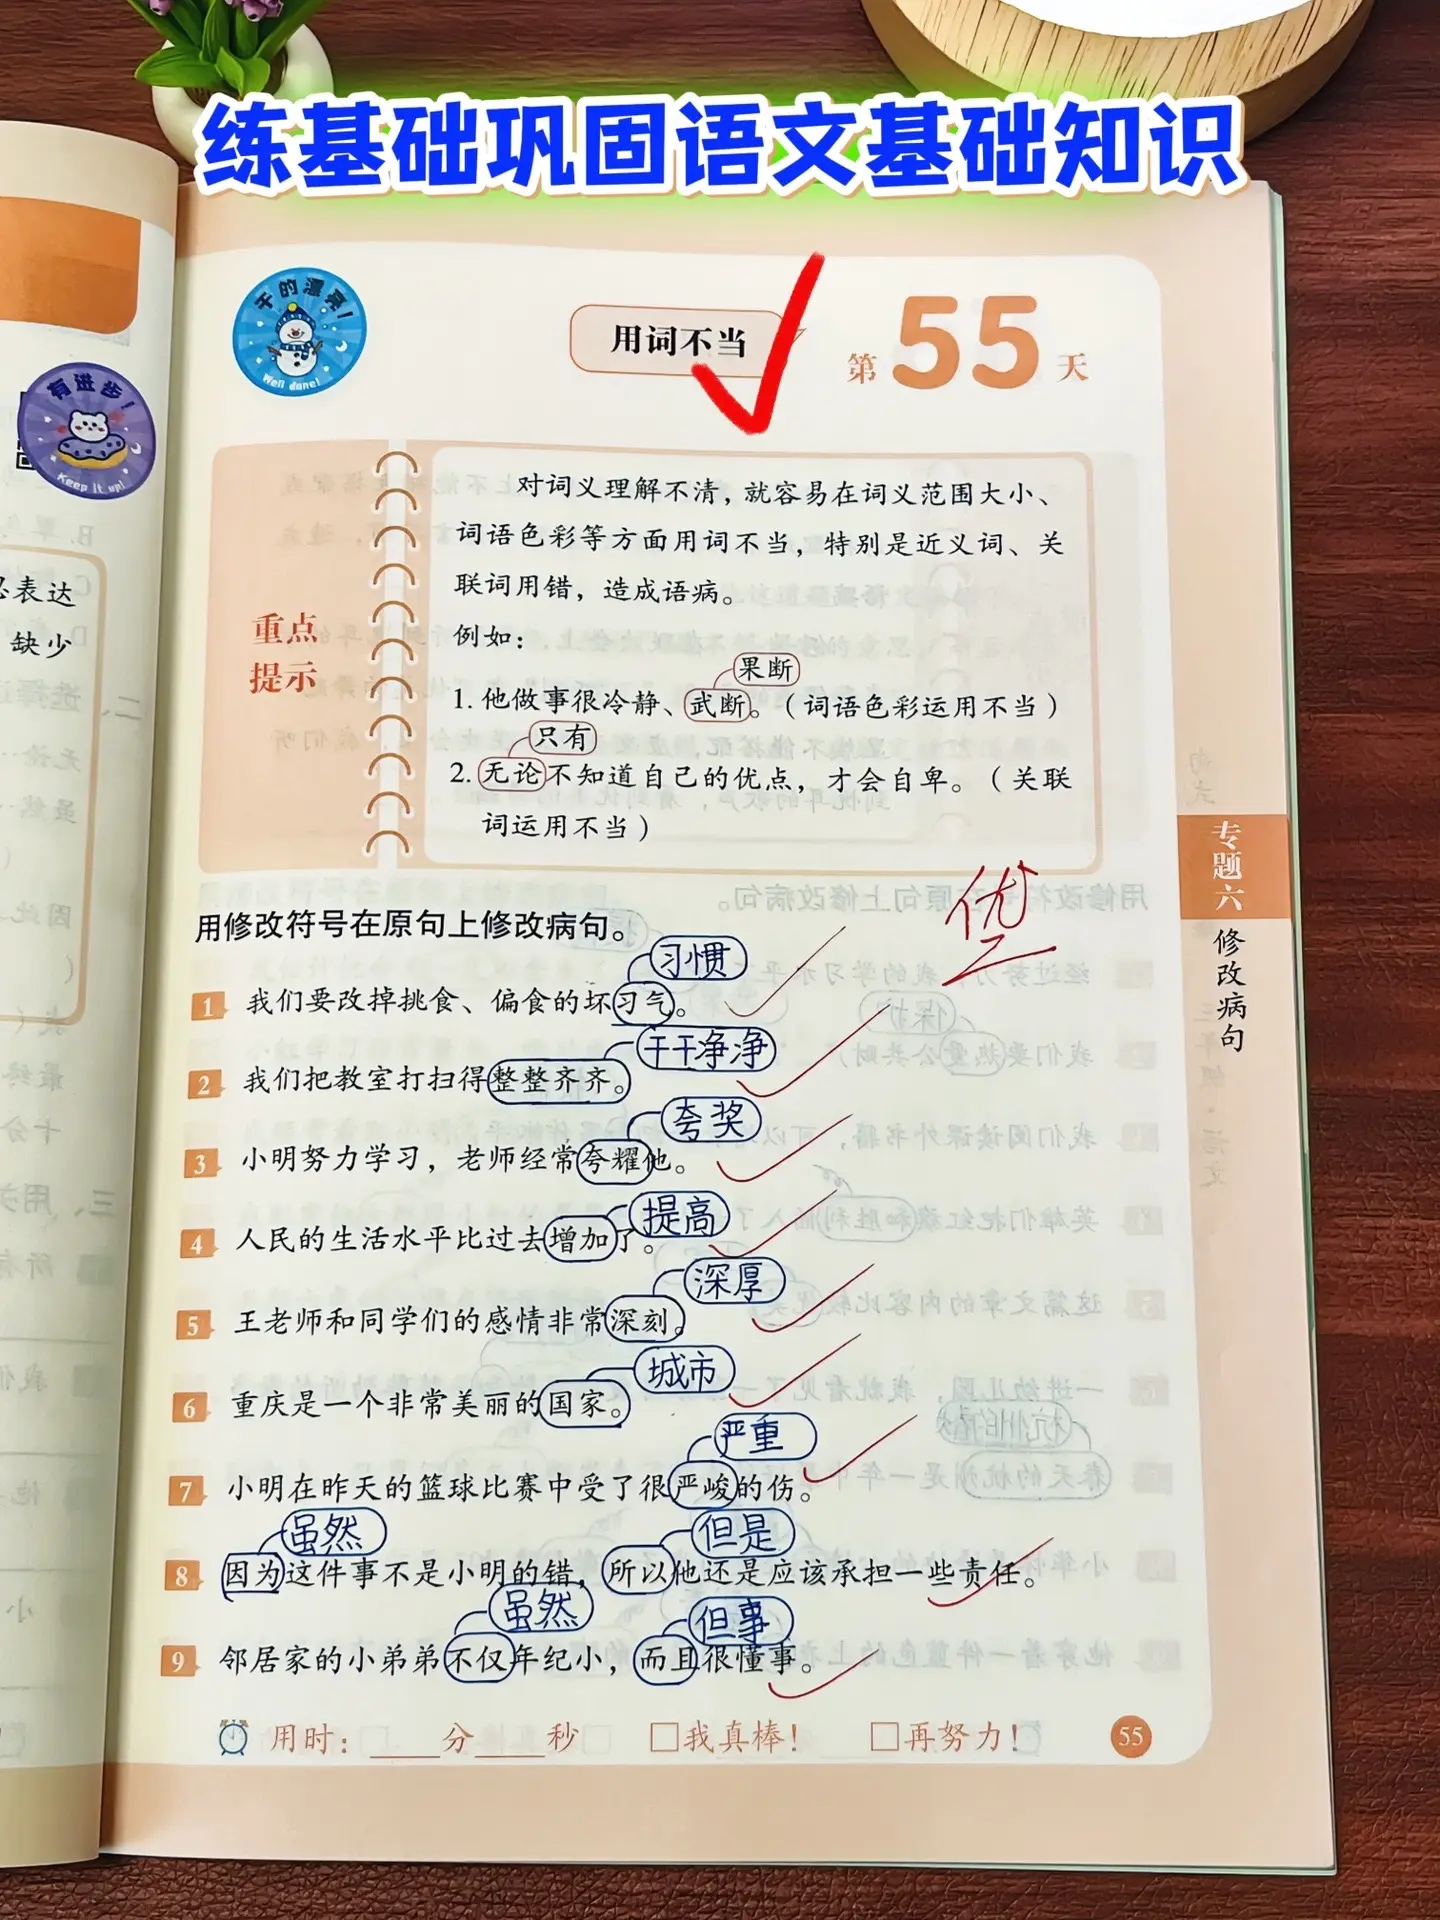 练基础巩固语文基础知识
干的漂亮!
Well done!
有进步!
Keep it up!
用词不当
第55天
表达
缺少
重点
提示
对词义理解不清，就容易在词义范围大小、
词语色彩等方面用词不当，特别是近义词、关
联词用错，造成语病。
例如：
果断
1. 他做事很冷静、武断。（词语色彩运用不当）
只有
2. 无论不知道自己的优点，才会自卑。（关联
词运用不当）
专题六
修改病句
优
用修改符号在原句上修改病句。
习惯
1 我们要改掉挑食、偏食的坏习气。
干干净净
2 我们把教室打扫得整整齐齐。
夸奖
3 小明努力学习，老师经常夸耀他。
提高
4 人民的生活水平比过去增加了。
深厚
5 王老师和同学们的感情非常深刻。
城市
6 重庆是一个非常美丽的国家。
严重
7 小明在昨天的篮球比赛中受了很严峻的伤。
虽然 但是
8 因为这件事不是小明的错，所以他还是应该承担一些责任。
虽然 但事
9 邻居家的小弟弟不仅年纪小，而且很懂事。
用时：____分____秒 □我真棒！ □再努力！
55